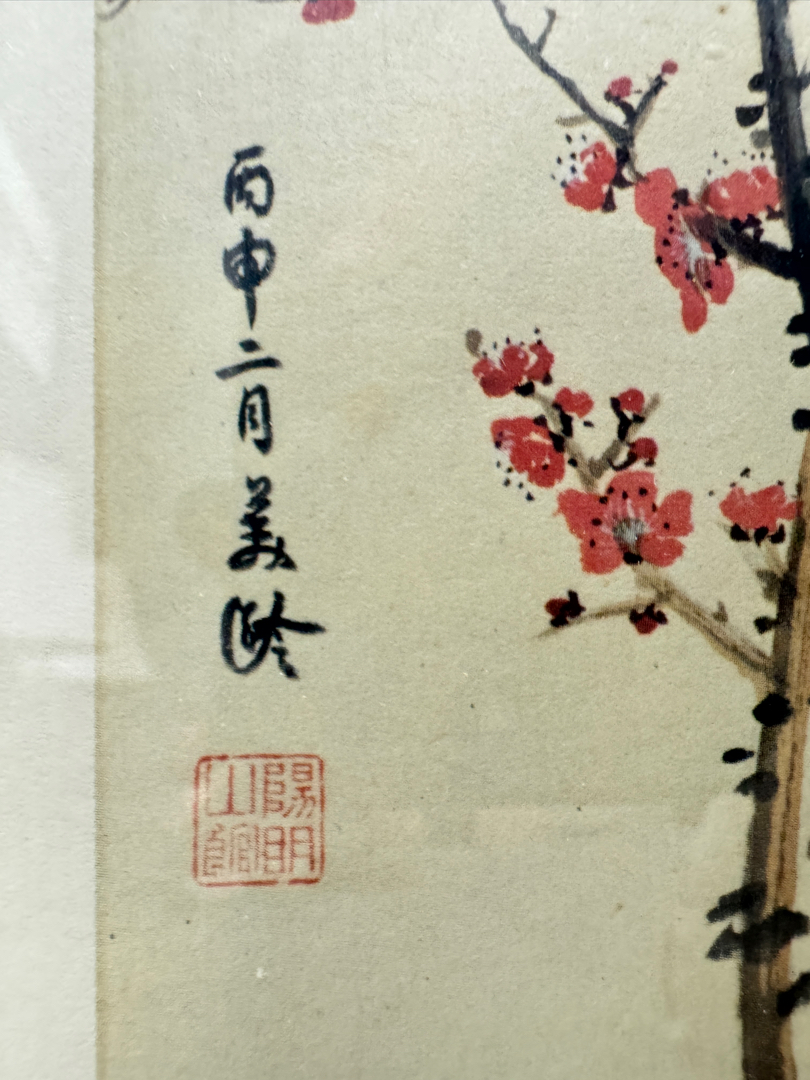 丙申二月美齡
陽明山館